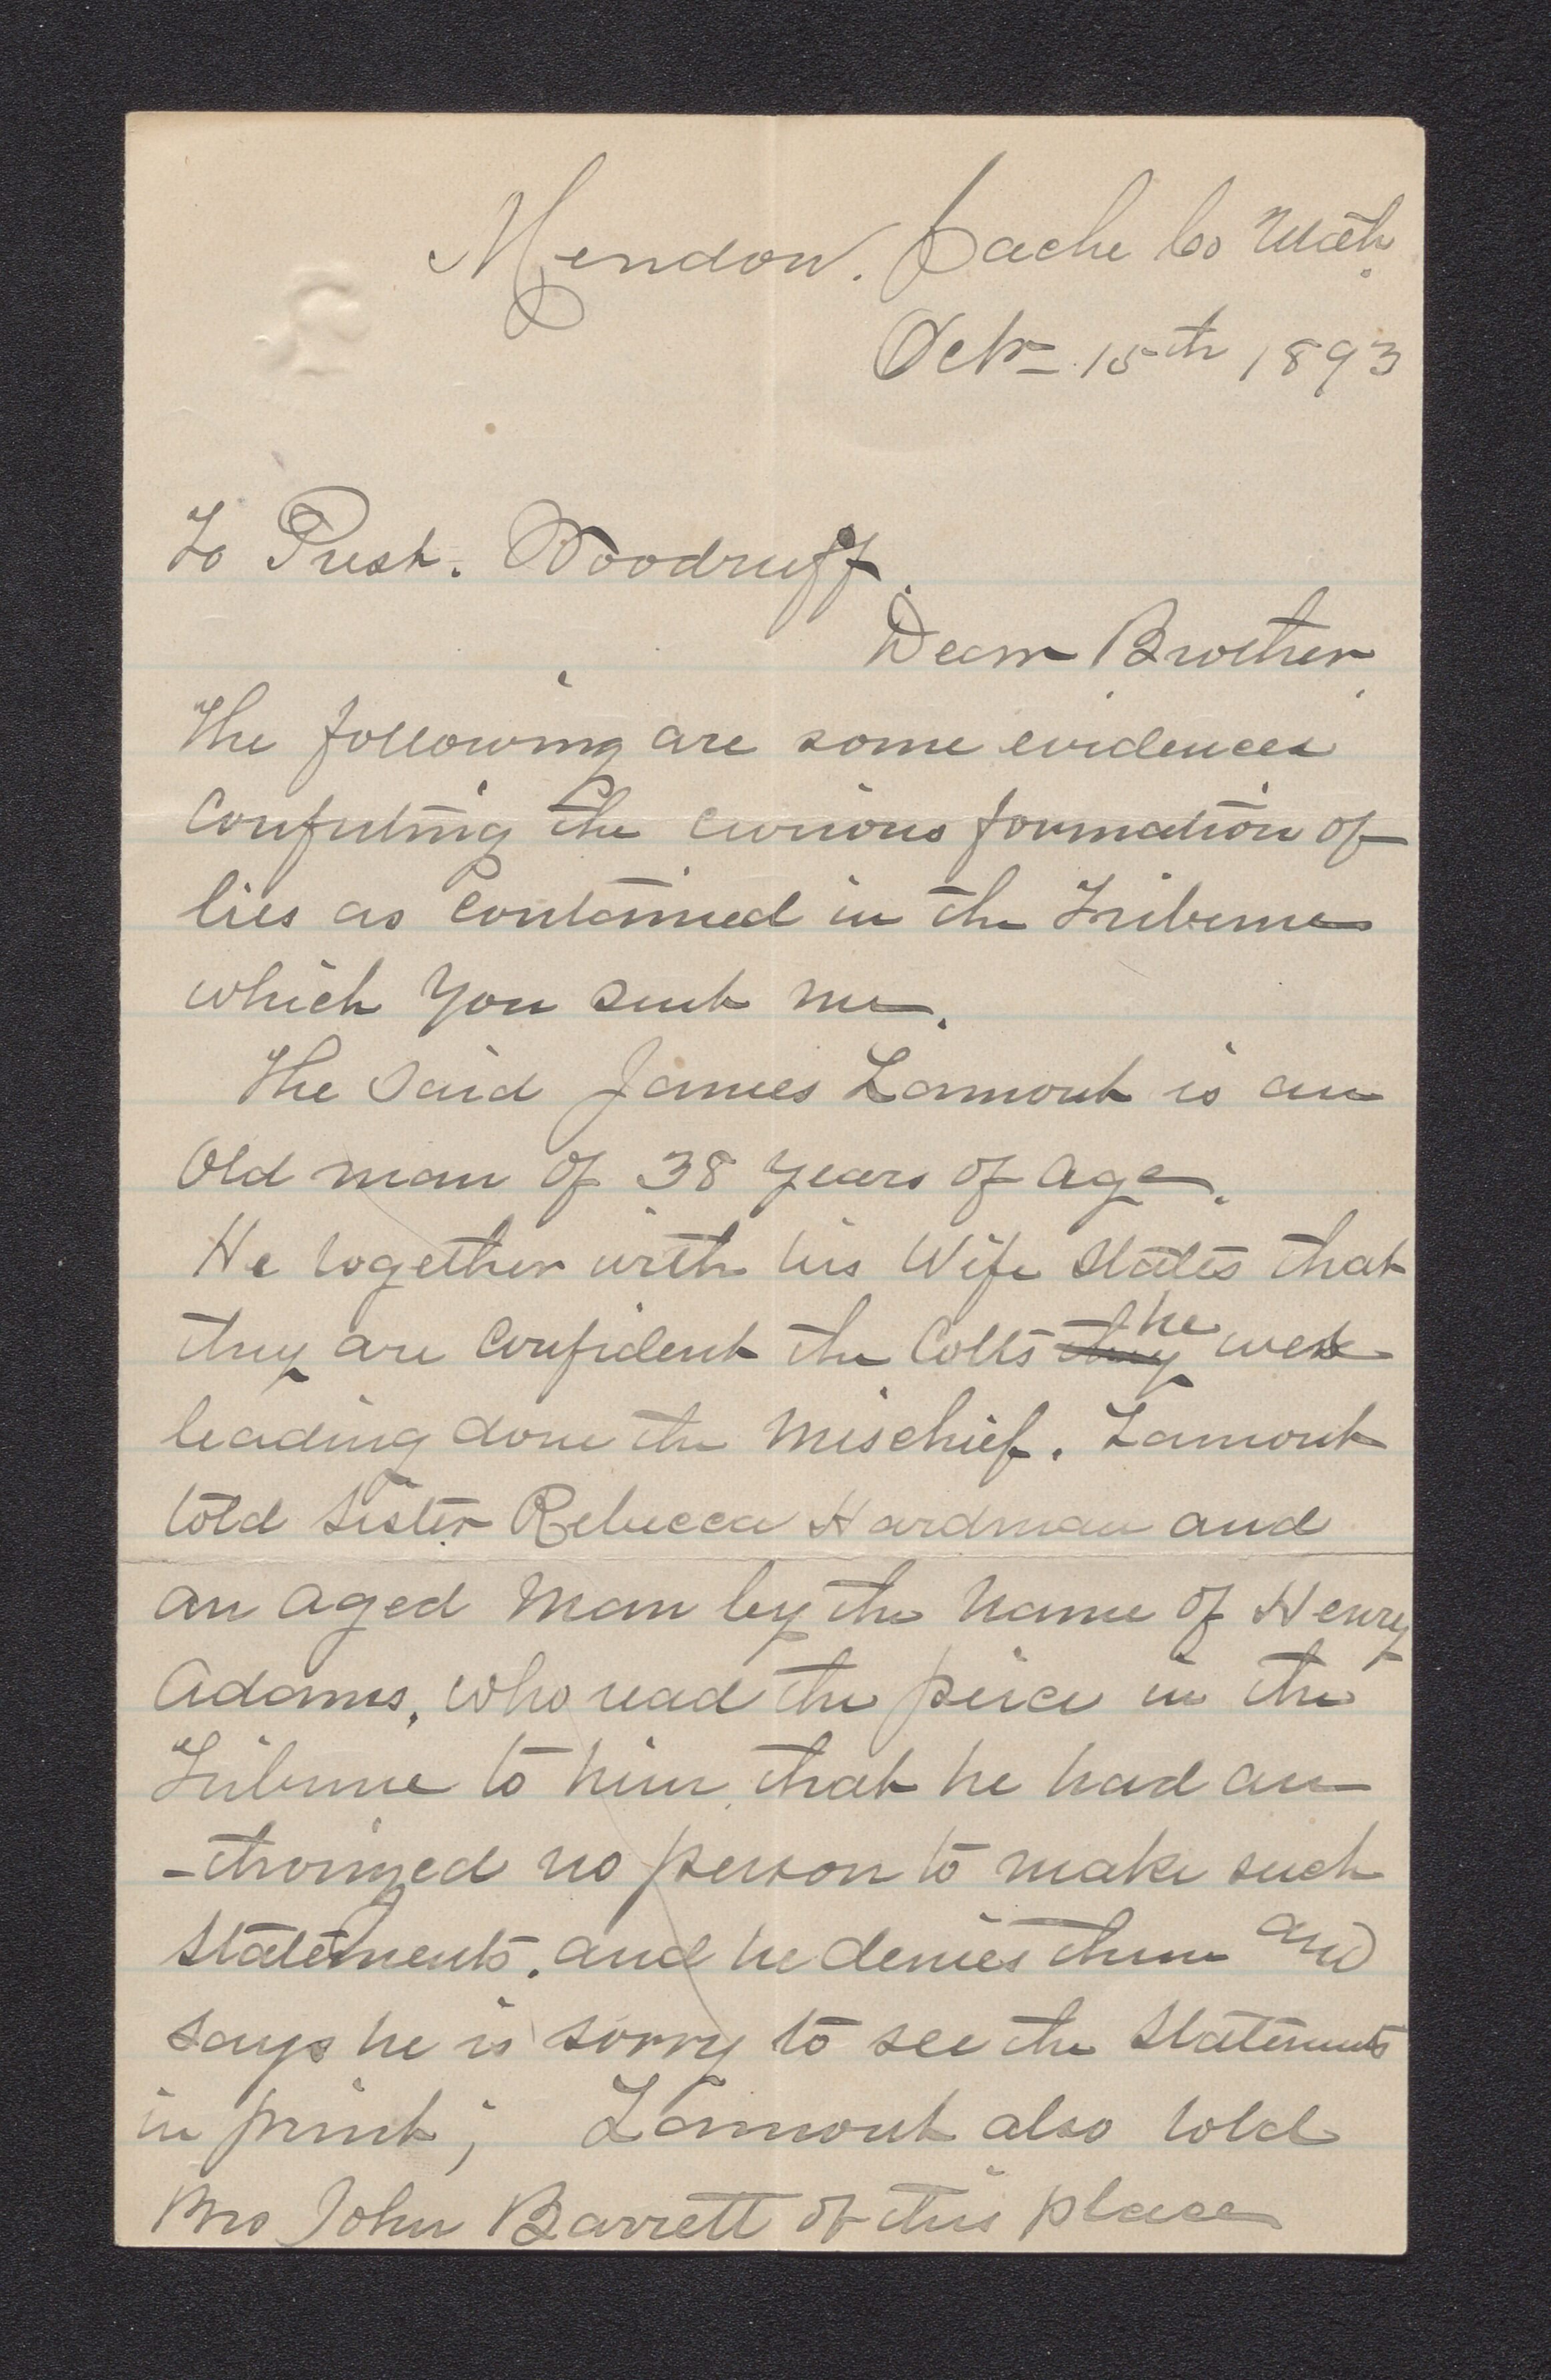 Mendon. Cache Co Utah.
Octr 15th 1893
To Prest. Woodruff.
Dear Brother
The following are some evidences
Confuting the curious formation of
lies as Contained in the Tribune
which you sent me.
The said James Lamont is an
Old man of 38 years of age.
He together with his Wife states that
they are Confident the Colts they he was
leading done the Mischief. Lamont
told sister Rebecca Hardman and
an aged man by the name of Henry
Adams, who read the peice in the
Tribune to him, that he had au
-thorized no person to make such
statements. and he denies them and
says he is sorry to see the statements
in print; Lamont also told
Bro John Barrett of this place